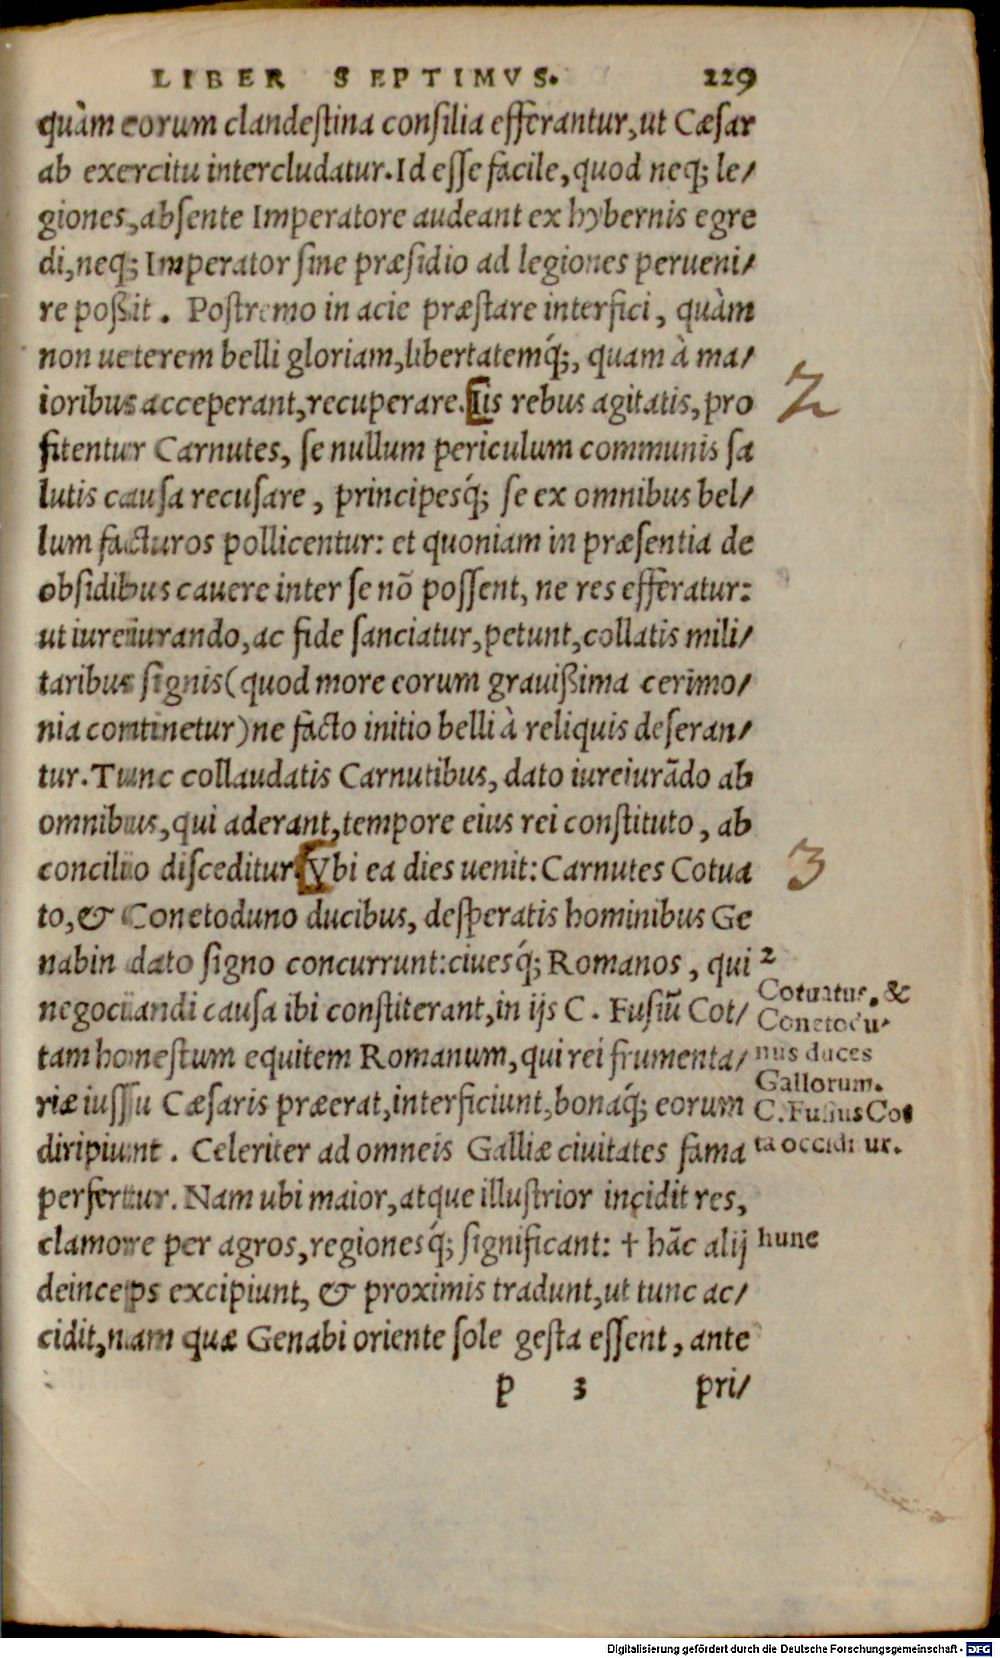 LIBER SEPTIMVS. 229
quàm eorum clandeſtina conſilia efferantur, ut Cæſar
ab exercitu intercludatur. Id eſſe facile, quod neq; le/
giones, abſente Imperatore audeant ex hybernis egre
di, neq; Imperator ſine præſidio ad legiones perueni/
re poßit. Poſtremo in acie præſtare interfici, quàm
non ueterem belli gloriam, libertatemq́;, quam à ma/
ioribus acceperant, recuperare. Iis rebus agitatis, pro
fitentur Carnutes, ſe nullum periculum communis ſa
lutis cauſa recuſare, principesq́; ſe ex omnibus bel/
lum facturos pollicentur: et quoniam in præſentia de
obſidibus cauere inter ſe nõ poſſent, ne res efferatur:
ut iureiurando, ac fide ſanciatur, petunt, collatis mili/
taribus ſignis (quod more eorum grauißima cerimo/
nia continetur) ne facto initio belli à reliquis deſeran/
tur. Tunc collaudatis Carnutibus, dato iureiurãdo ab
omnibus, qui aderant, tempore eius rei conſtituto, ab
concilio diſceditur. Vbi ea dies uenit: Carnutes Cotua
to, & Conetoduno ducibus, deſperatis hominibus Ge
nabin dato ſigno concurrunt: ciuesq́; Romanos, qui
negociandi cauſa ibi conſtiterant, in ijs C. Fuſiũ Cot/
tam honeſtum equitem Romanum, qui rei frumenta/
riæ iuſſu Cæſaris præerat, interficiunt, bonaq́; eorum
diripiunt. Celeriter ad omneis Galliæ ciuitates fama
perfertur. Nam ubi maior, atque illuſtrior incidit res,
clamore per agros, regionesq́; ſignificant: † hãc alij
deinceps excipiunt, & proximis tradunt, ut tunc ac/
cidit, nam quæ Genabi oriente ſole geſta eſſent, ante
p 3 pri/
2
3
2
Cotuatus, &
Conetodu-
nus duces
Gallorum.
C. Fuſius Cot
ta occiditur.
hunc
Digitalisierung gefördert durch die Deutsche Forschungsgemeinschaft - DFG